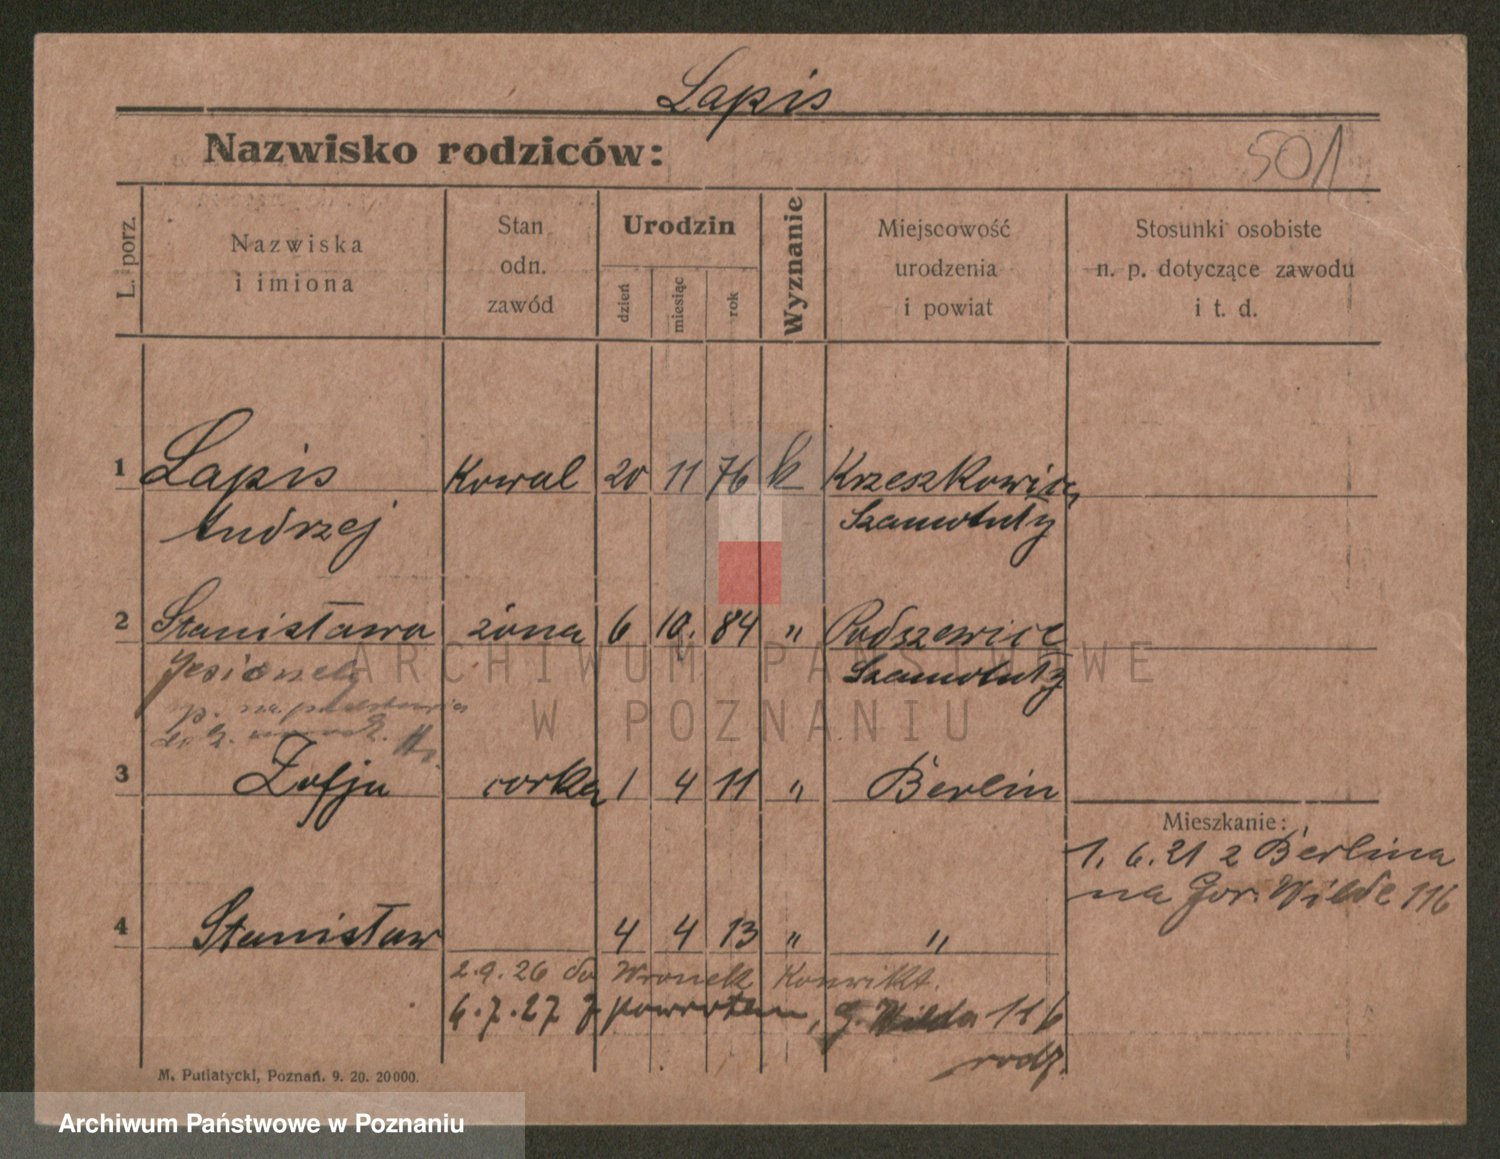 Lapis
Nazwisko rodziców:
501
L. porz.
Nazwiska
i imiona
Stan
odn.
zawód
Urodzin
dzień
miesiąc
rok
Wyznanie
Miejscowość
urodzenia
i powiat
Stosunki osobiste
n. p. dotyczące zawodu
i t. d.
1 Lapis Kowal 20 11 76 k Krzeszkowice
Andrzej Szamotuły
2 Stanisława żona 6 10. 84 " Podszewice
Jesionek Szamotuły
p. na podstawie
3 Zofja corka 1 4 11 " Berlin
Mieszkanie:
1. 6. 21 z Berlina
na Gor. Wilde 116
4 Stanisław 4 4 13 " "
2.9.26 do Wronek Konwikt.
6.7.27 z powrotem, G. Wilda 116
rodz.
M. Putiatycki, Poznań. 9. 20. 20000.
ARCHIWUM PAŃSTWOWE
W POZNANIU
Archiwum Państwowe w Poznaniu